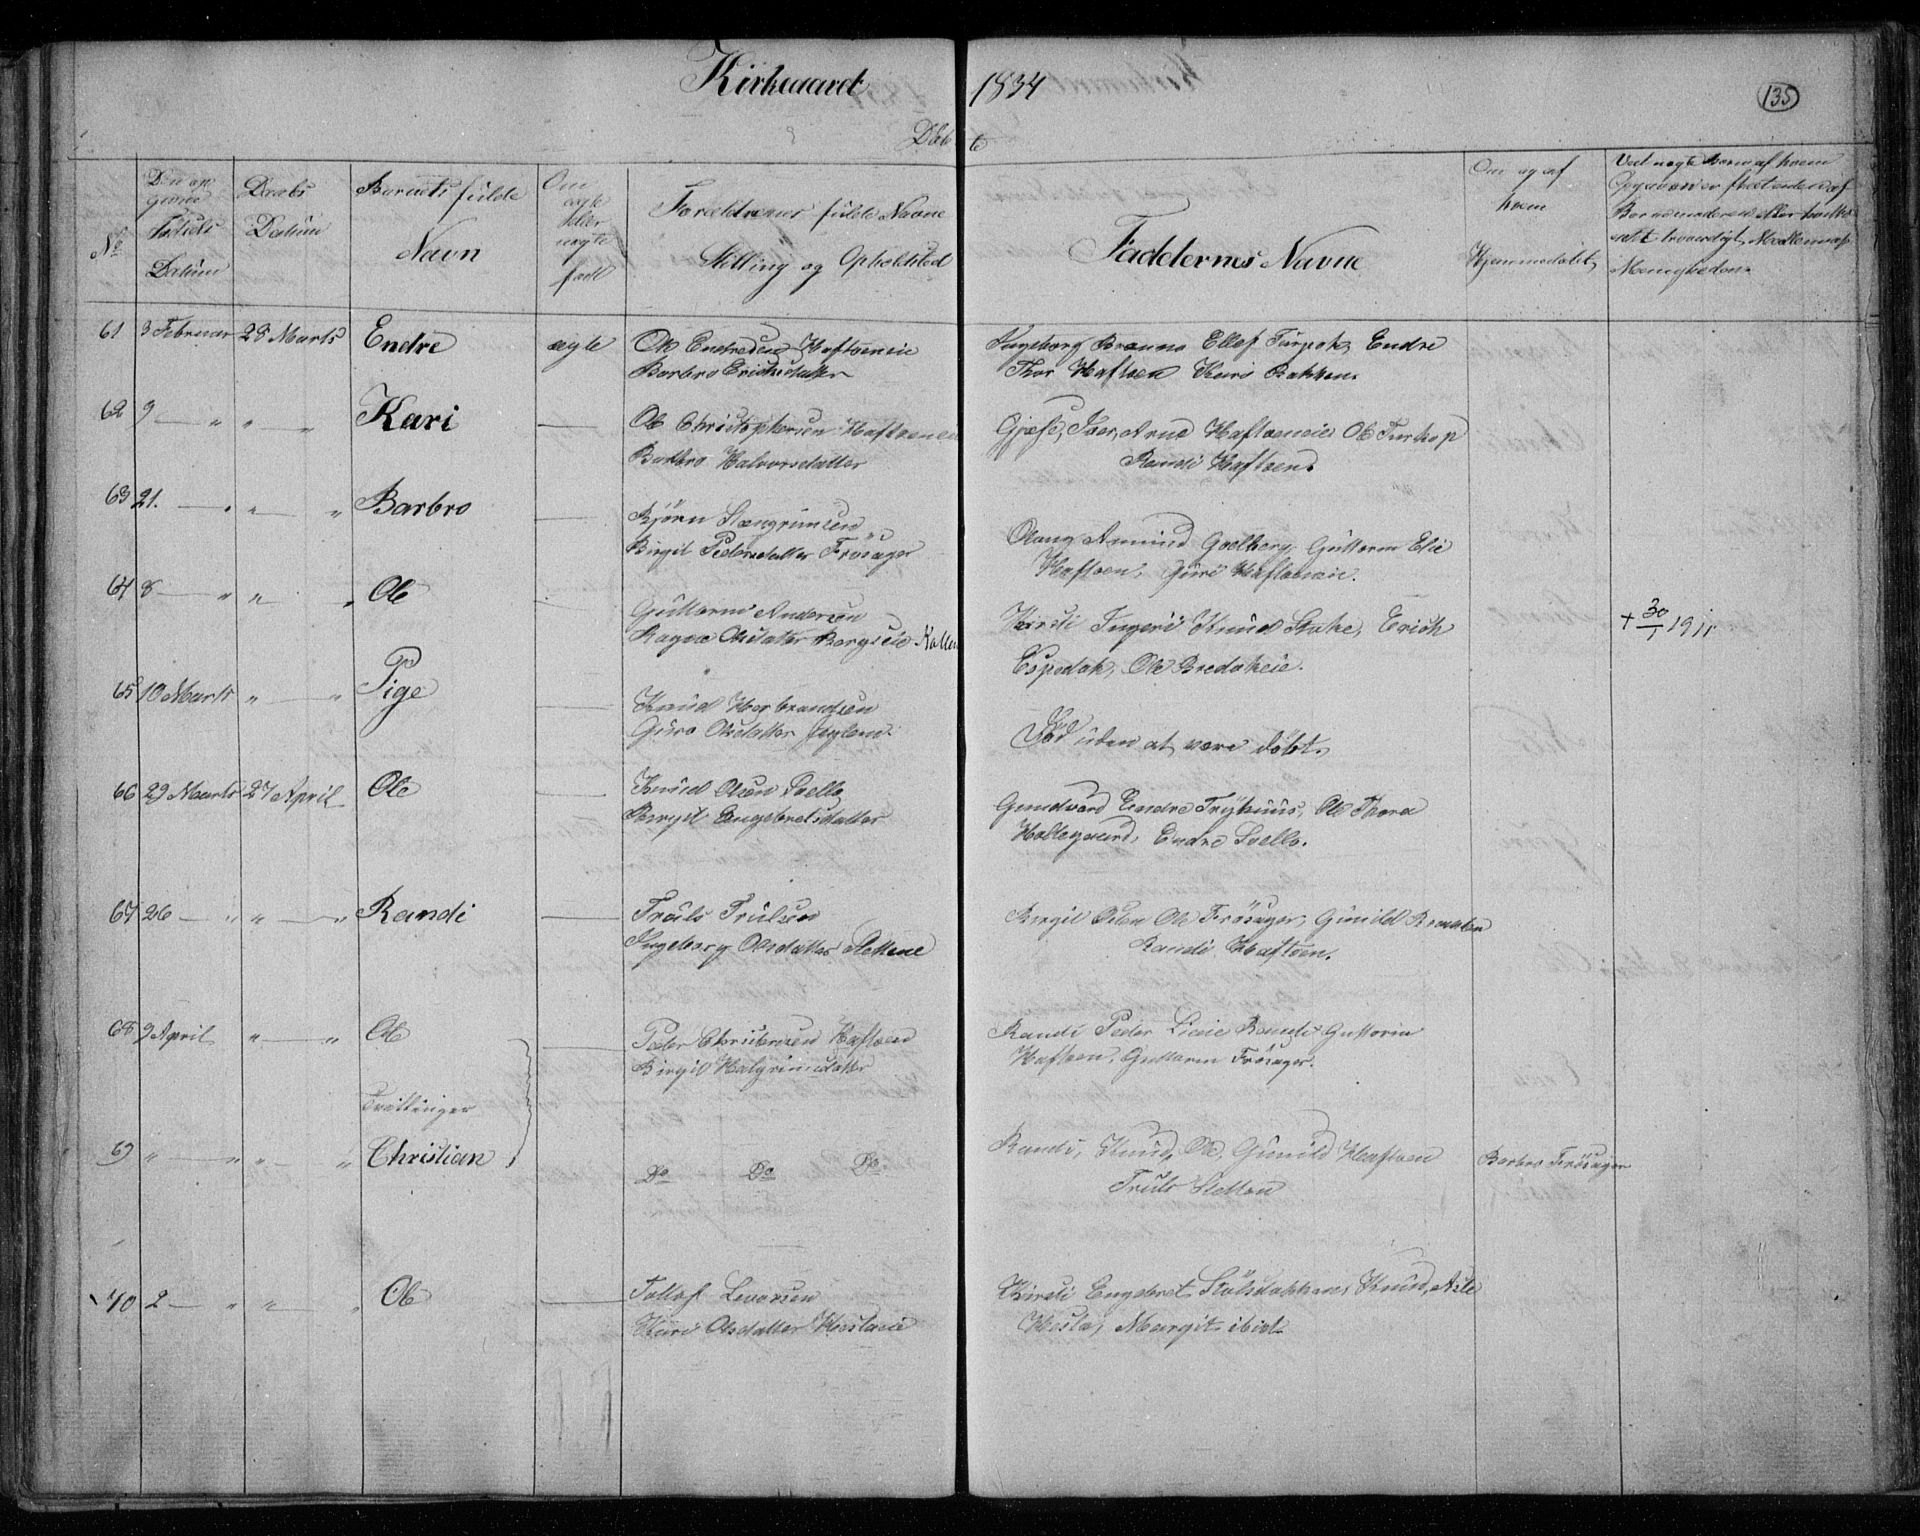 Kirkeaaret 1834
135
Døbte
No
Den op
givne
Fødsels
Datum
Daabs
Datum
Barnets fulde
Navn
Om
ægte
eller
uægte
født
Forældrenes fulde Navne
Stilling og Opholdsted
Faddernes Navne
Om og af
hvem
Hjemmedøbt
Ved uægte Børn af hvem
Opgaven er
Menigheden
61 3 Februar 28 Marts Endre ægte Ole Endresen Haftoeneie
Barbro Erichsdatter
Ingeborg Brænna Ellef Turpok, Endre
Thor Haftoen Kari Bakken.
62 9 — " " — " Kari — Ole Christophersen Haftoeneie
Barbro Halvorsdatter
Gjøse, Iver, Arne Haftoeneie Ole Turkop
Randi Haftoen.
63 21. — " " — " Barbro — Bjørn Steengrimsen
Birgit Pedersdatter Frøsager
Olaug Amund Goelberg, Guttorm Elie
Haftoen, Guri Haftoeneie.
64 8 — " " — " Ole — Guttorm Andersen
Ragne Olsdatter Bergseie
Kirsti Ingeri Knud Stake, Erich
Espedok, Ole Bredokeie.
+ 30/1 1911
65 10 Marts " — " Pige — Knud Herbrandsen
Guro Olsdatter
Død uden at være døbt.
66 29 Marts 27 April Ole — Knud Olsen Svello
Birgit Engebretsdatter
Gundvord Endre Tryhuus, Ole Thora
Hallegaard, Endre Svello.
67 26 — " " — " Randi — Truls Trulsen
Ingeborg Olsdatter Slettene
Birgit Osten Ole Frøsager, Gunild
Randi Haftoen.
68 9 April " — " Ole — Peder Christensen Haftoen
Birgit Halgrimsdatter
Randi Peder Lieie Randi Guttorm
Haftoen, Guttorm Frøsager.
Tvillinger
69 " — " " — " Christian Do Do Do
Randi, Knud, Ole, Gunild Haftoen
Truls Sletten
Barbro Frøsager
70 2 — " " — " Ole — Tollef Levorsen
Kari Olsdatter Heslaeie
Kirsti Engebret Stølsdokken, Knud, Asle
Hesla, Margit ibid